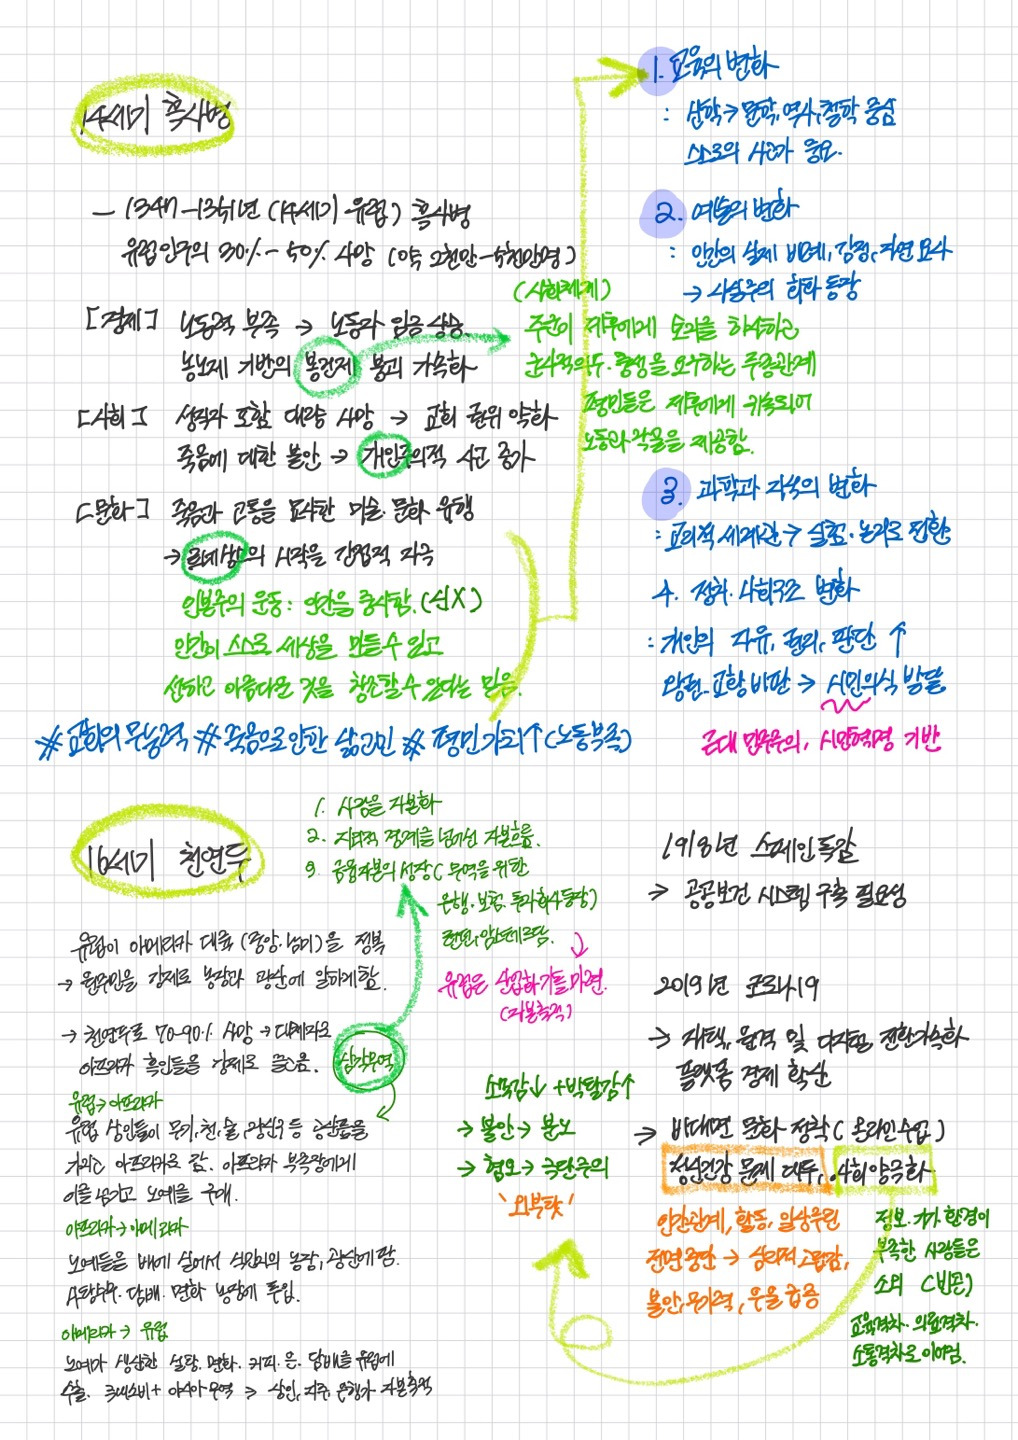 14세기 흑사병
- 1347-1351년 (14세기 유럽) 흑사병
유럽인구의 30%-50% 사망 (약 2천만-5천만명)
[경제] 노동력 부족 → 노동자 임금 상승.
농노제 기반의 봉건제 붕괴 가속화
[사회] 성직자 포함 대량 사망 → 교회 권위 약화
죽음에 대한 불안 → 개인주의적 사고 증가
[문화] 죽음과 고통을 묘사한 미술·문화 유행
→ 르네상스의 시작을 간접적 자극
인본주의 운동: 인간을 중시함. (신X)
인간이 스스로 세상을 만들 수 있고
선하고 아름다운 것을 창조할 수 있다는 믿음.
(사회체계)
주군이 제후에게 토지를 하사하고
군사적의무·충성을 요구하는 주종관계
평민들은 제후에게 귀속되어
노동과 작물을 제공함.
# 교회의 무능력 # 죽음으로 인한 삶고민 # 평민가치↑(노동부족)
1. 교육의 변화
: 신학 → 문학, 역사, 철학 중심
스스로의 사고가 중요.
2. 예술의 변화
: 인간의 실제 비례, 감정, 자연 묘사
→ 사실주의 회화 등장
3. 과학과 지식의 변화
: 교리적 세계관 → 실험·논리로 전환
4. 정치·사회구조 변화
: 개인의 자유, 권리, 판단 ↑
왕권·교황 비판 → 시민의식 발달
근대 민주주의, 시민혁명 기반
16세기 천연두
1. 사람을 자본화
2. 지리적 경계를 넘어선 자본흐름.
3. 금융자본의 성장 ( 무역을 위한
은행·보험·투자회사 등장)
런던, 암스테르담.
유럽은 산업화 기틀 마련.
(자본축적)
유럽이 아메리카 대륙 (중앙·남미)을 정복
→ 원주민을 강제로 농장과 광산에 일하게함.
→ 천연두로 70-90% 사망 → 대체자로
아프리카 흑인들을 강제로 끌고옴.
삼각무역
유럽→아프리카
유럽 상인들이 무기, 천, 술, 장신구 등 공산품을
가지고 아프리카로 감. 아프리카 부족장에게
이를 넘기고 노예를 구매.
아프리카→아메리카
노예들은 배에 실어서 식민지의 농장, 광산에 팜.
사탕수수·담배·면화 농장에 투입.
아메리카→ 유럽
노예가 생산한 설탕·면화·커피·은·담배를 유럽에
수출. 아시아무역 → 상인, 지주, 은행가 자본축적
소득감↓ + 박탈감↑
→ 불안 → 분노
→ 혐오 → 극단주의
'외부탓'
1918년 스페인독감
→ 공공보건 시스템 구축 필요성
2019년 코로나19
→ 재택, 원격 및 디지털 전환가속화
플랫폼 경제 확산
→ 비대면 문화 정착 (온라인수업)
정신건강 문제 대두, 사회 양극화
인간관계, 활동, 일상루틴
전면중단 → 심리적 고립감,
불안, 무기력, 우울 급증
정보·기기 환경이
부족한 사람들은
소외 (빈곤)
교육격차·의료격차·
소통격차로 이어짐.